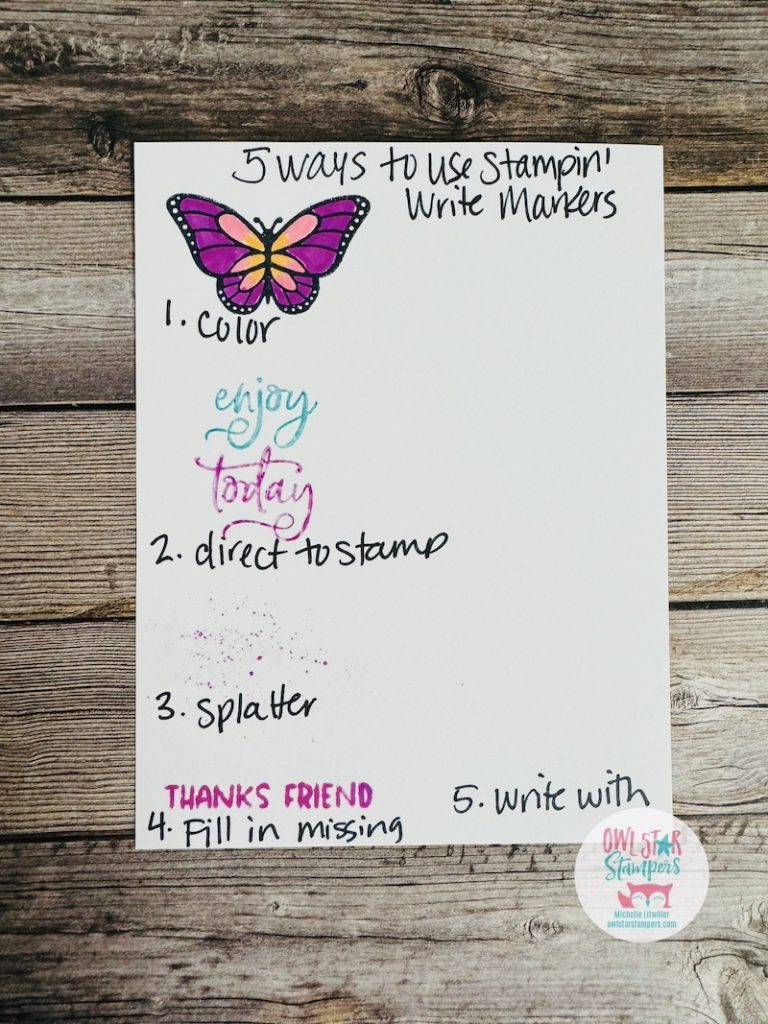 5 ways to use Stampin'
Write Markers
1. color
enjoy
today
2. direct to stamp
3. splatter
THANKS FRIEND
4. Fill in missing
5. write with
OWL STAR
Stampers
Michelle Litwiller
owlstarstampers.com